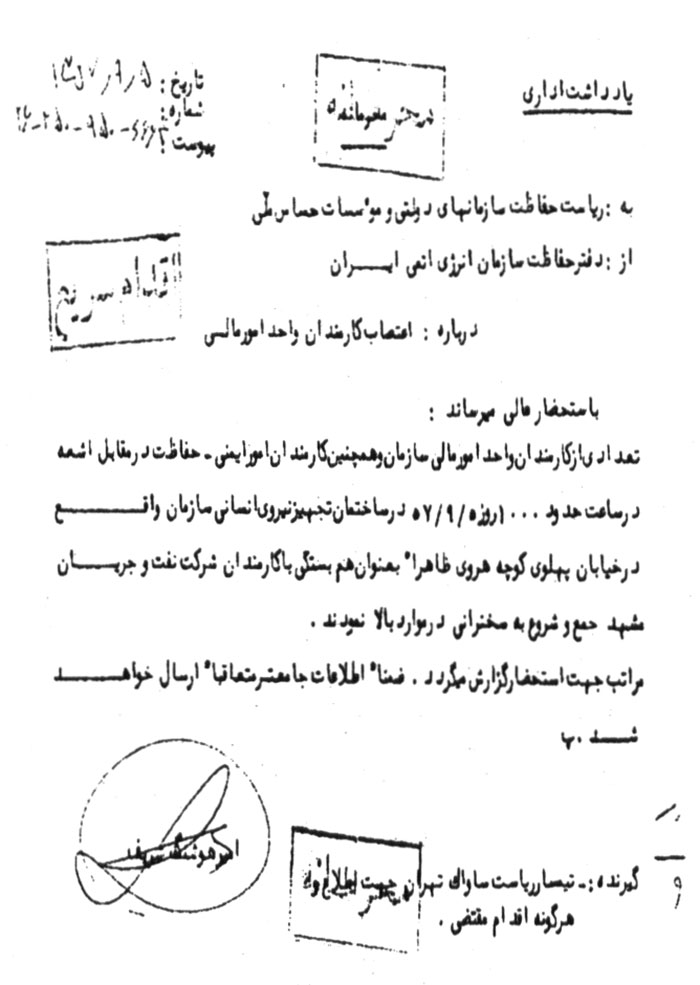 یادداشت اداری
محرمانه
تاریخ : ۱۳۵۷/۹/۵
شماره :
پیوست :
به : ریاست حفاظت سازمانهای دولتی و موٴسسات حساس ملّی
از : دفتر حفاظت سازمان انرژی اتمی ایـــران
اقدام سریع
درباره : اعتصاب کارمندان واحد امور مالـــی
باستحضار عالی میرساند :
تعدادی از کارمندان واحد امور مالی سازمان و همچنین کارمندان امور ایمنی ـ حفاظت در مقابل اشعه
در ساعت حدود ۱۰۰۰ روز ۵۷/۹/۵ در ساختمان تجهیز نیروی انسانی سازمان واقـــــع
در خیابان پهلوی کوچه هروی ظاهرا" بعنوان هم بستگی با کارمندان شرکت نفت و جریـــــان
مشهد جمع و شروع به سخنرانی در موارد بالا نمودند .
مراتب جهت استحضار گزارش میگردد . ضمنا" اطلاعات جامعتر متعاقبا" ارسال خواهـــــد
شــــد . پ
گیرنده :ـ تیمسار ریاست ساواک تهران جهت اطلاع و
هرگونه اقدام مقتضی .